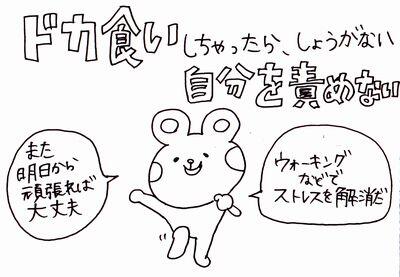 ドカ食いしちゃったら、しょうがない
自分を責めない
また
明日から
頑張れば
大丈夫
ウォーキング
などで
ストレスを解消だ